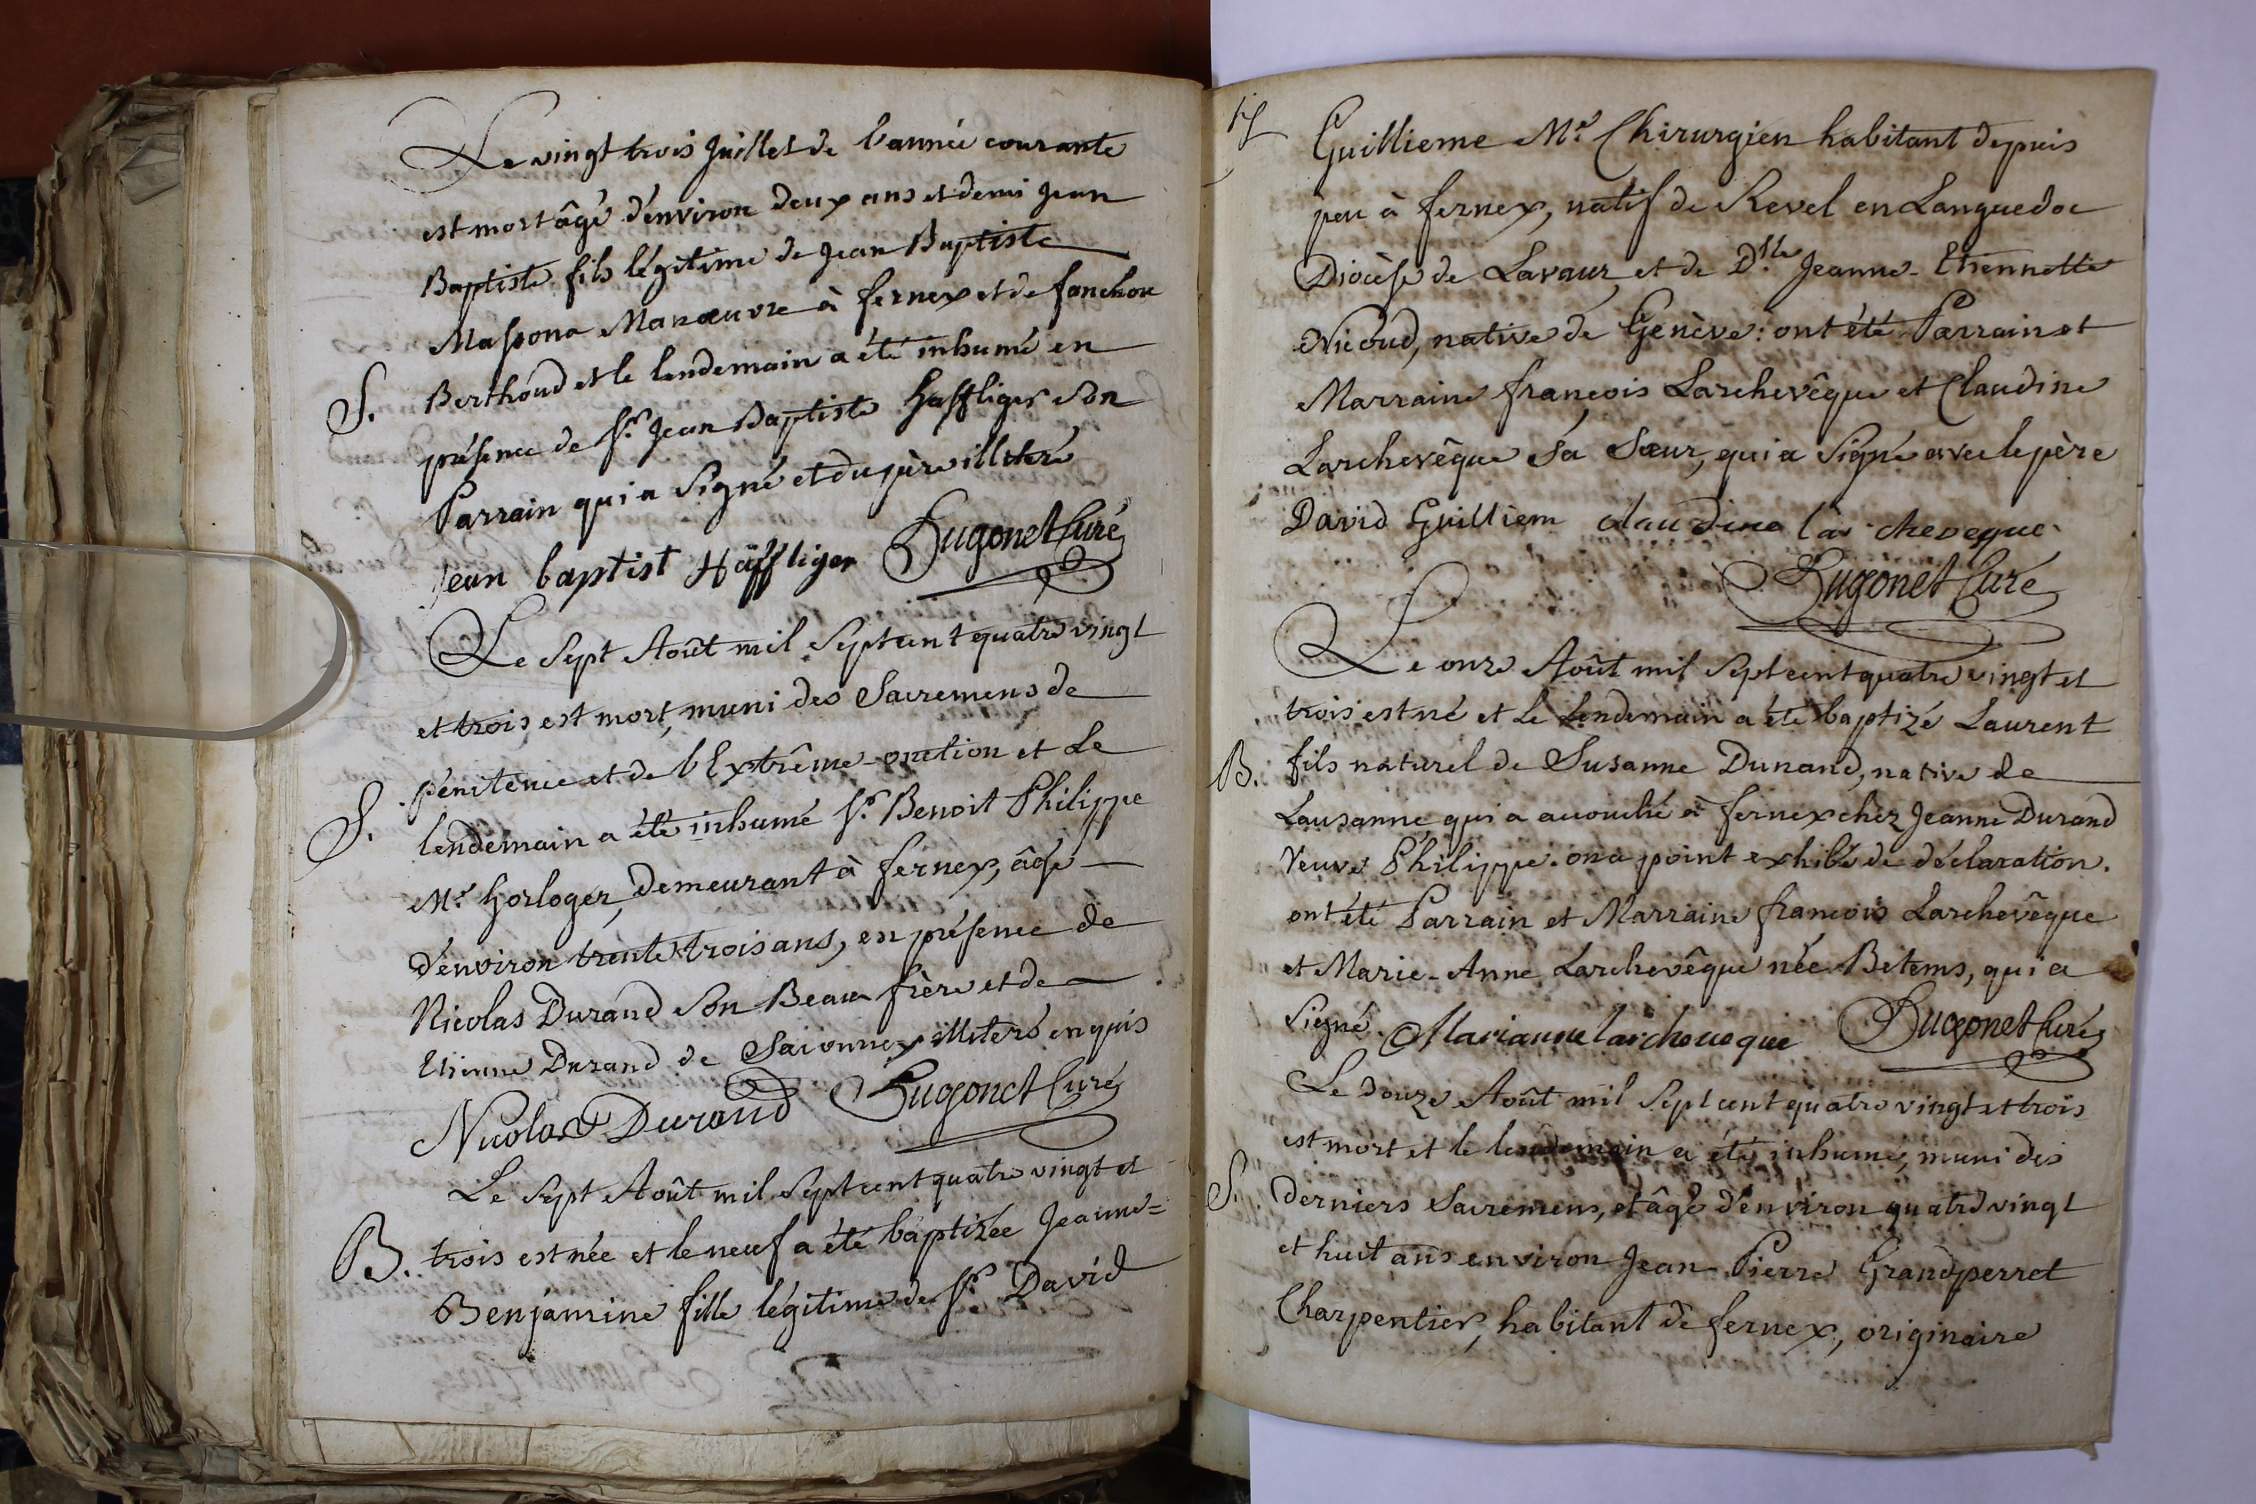 Le vingt trois Juillet de l'année courante
est mort âgé d'environ deux ans et demi Jean
Baptiste fils légitime de Jean Baptiste
Massona Manœuvre à fernex et de fanchon
S. Berthoud et le lendemain a été inhumé en
présence de Sr. Jean Baptiste haffliger son
Parrain qui a signé et du père illiteré
Jean baptist Häffliger Hugonet Curé
Le sept Août mil sept cent quatre vingt
et trois est mort, muni des Sacremens de
pénitence et de l'Extrême-onction et Le
S. lendemain a été inhumé Sr. Benoit Philippe
Me. horloger, demeurant à fernex, âgé
d'environ trente trois ans, en présence de
Nicolas Durand son Beau frère et de
Etienne Durand de Saconnex illiteré enquis
Nicolas Durand Hugonet Curé
Le sept Août mil sept cent quatre vingt et
B. trois est née et le neuf a été baptizée Jeanne=
Benjamine fille légitime de Sr. David
Guillieme Me. Chirurgien habitant depuis
peu à fernex, natif de Revel en Languedoc
Diocèse de Lavaur, et de Dlle. Jeanne-Etiennette
Nicoud, native de Genève: ont été Parrain et
Marraine françois Larchevêque et Claudine
Larchevêque sa Sœur, qui a signé avec le père
David Guilliem claudine lar chevequc
Hugonet Curé
Le onze Août mil sept cent quatre vingt et
trois est né et Le Lendemain a été baptizé Laurent
B. fils naturel de Susanne Dunand, native de
Lausanne, qui a accouché à fernex chez Jeanne Durand
Veuve Philippe. on a point exhibé de déclaration.
ont été Parrain et Marraine francois Larchevêque
et Marie-Anne Larchevêque née Betems, qui a
signé. Marianne larcheueque Hugonet Curé
Le douze Août mil sept cent quatre vingt et trois
est mort et le lendemain a été inhumé, muni des
S. derniers Sacremens, et âgé d'environ quatre vingt
et huit ans environ Jean-Pierre Grandperret
Charpentier, habitant de fernex, originaire